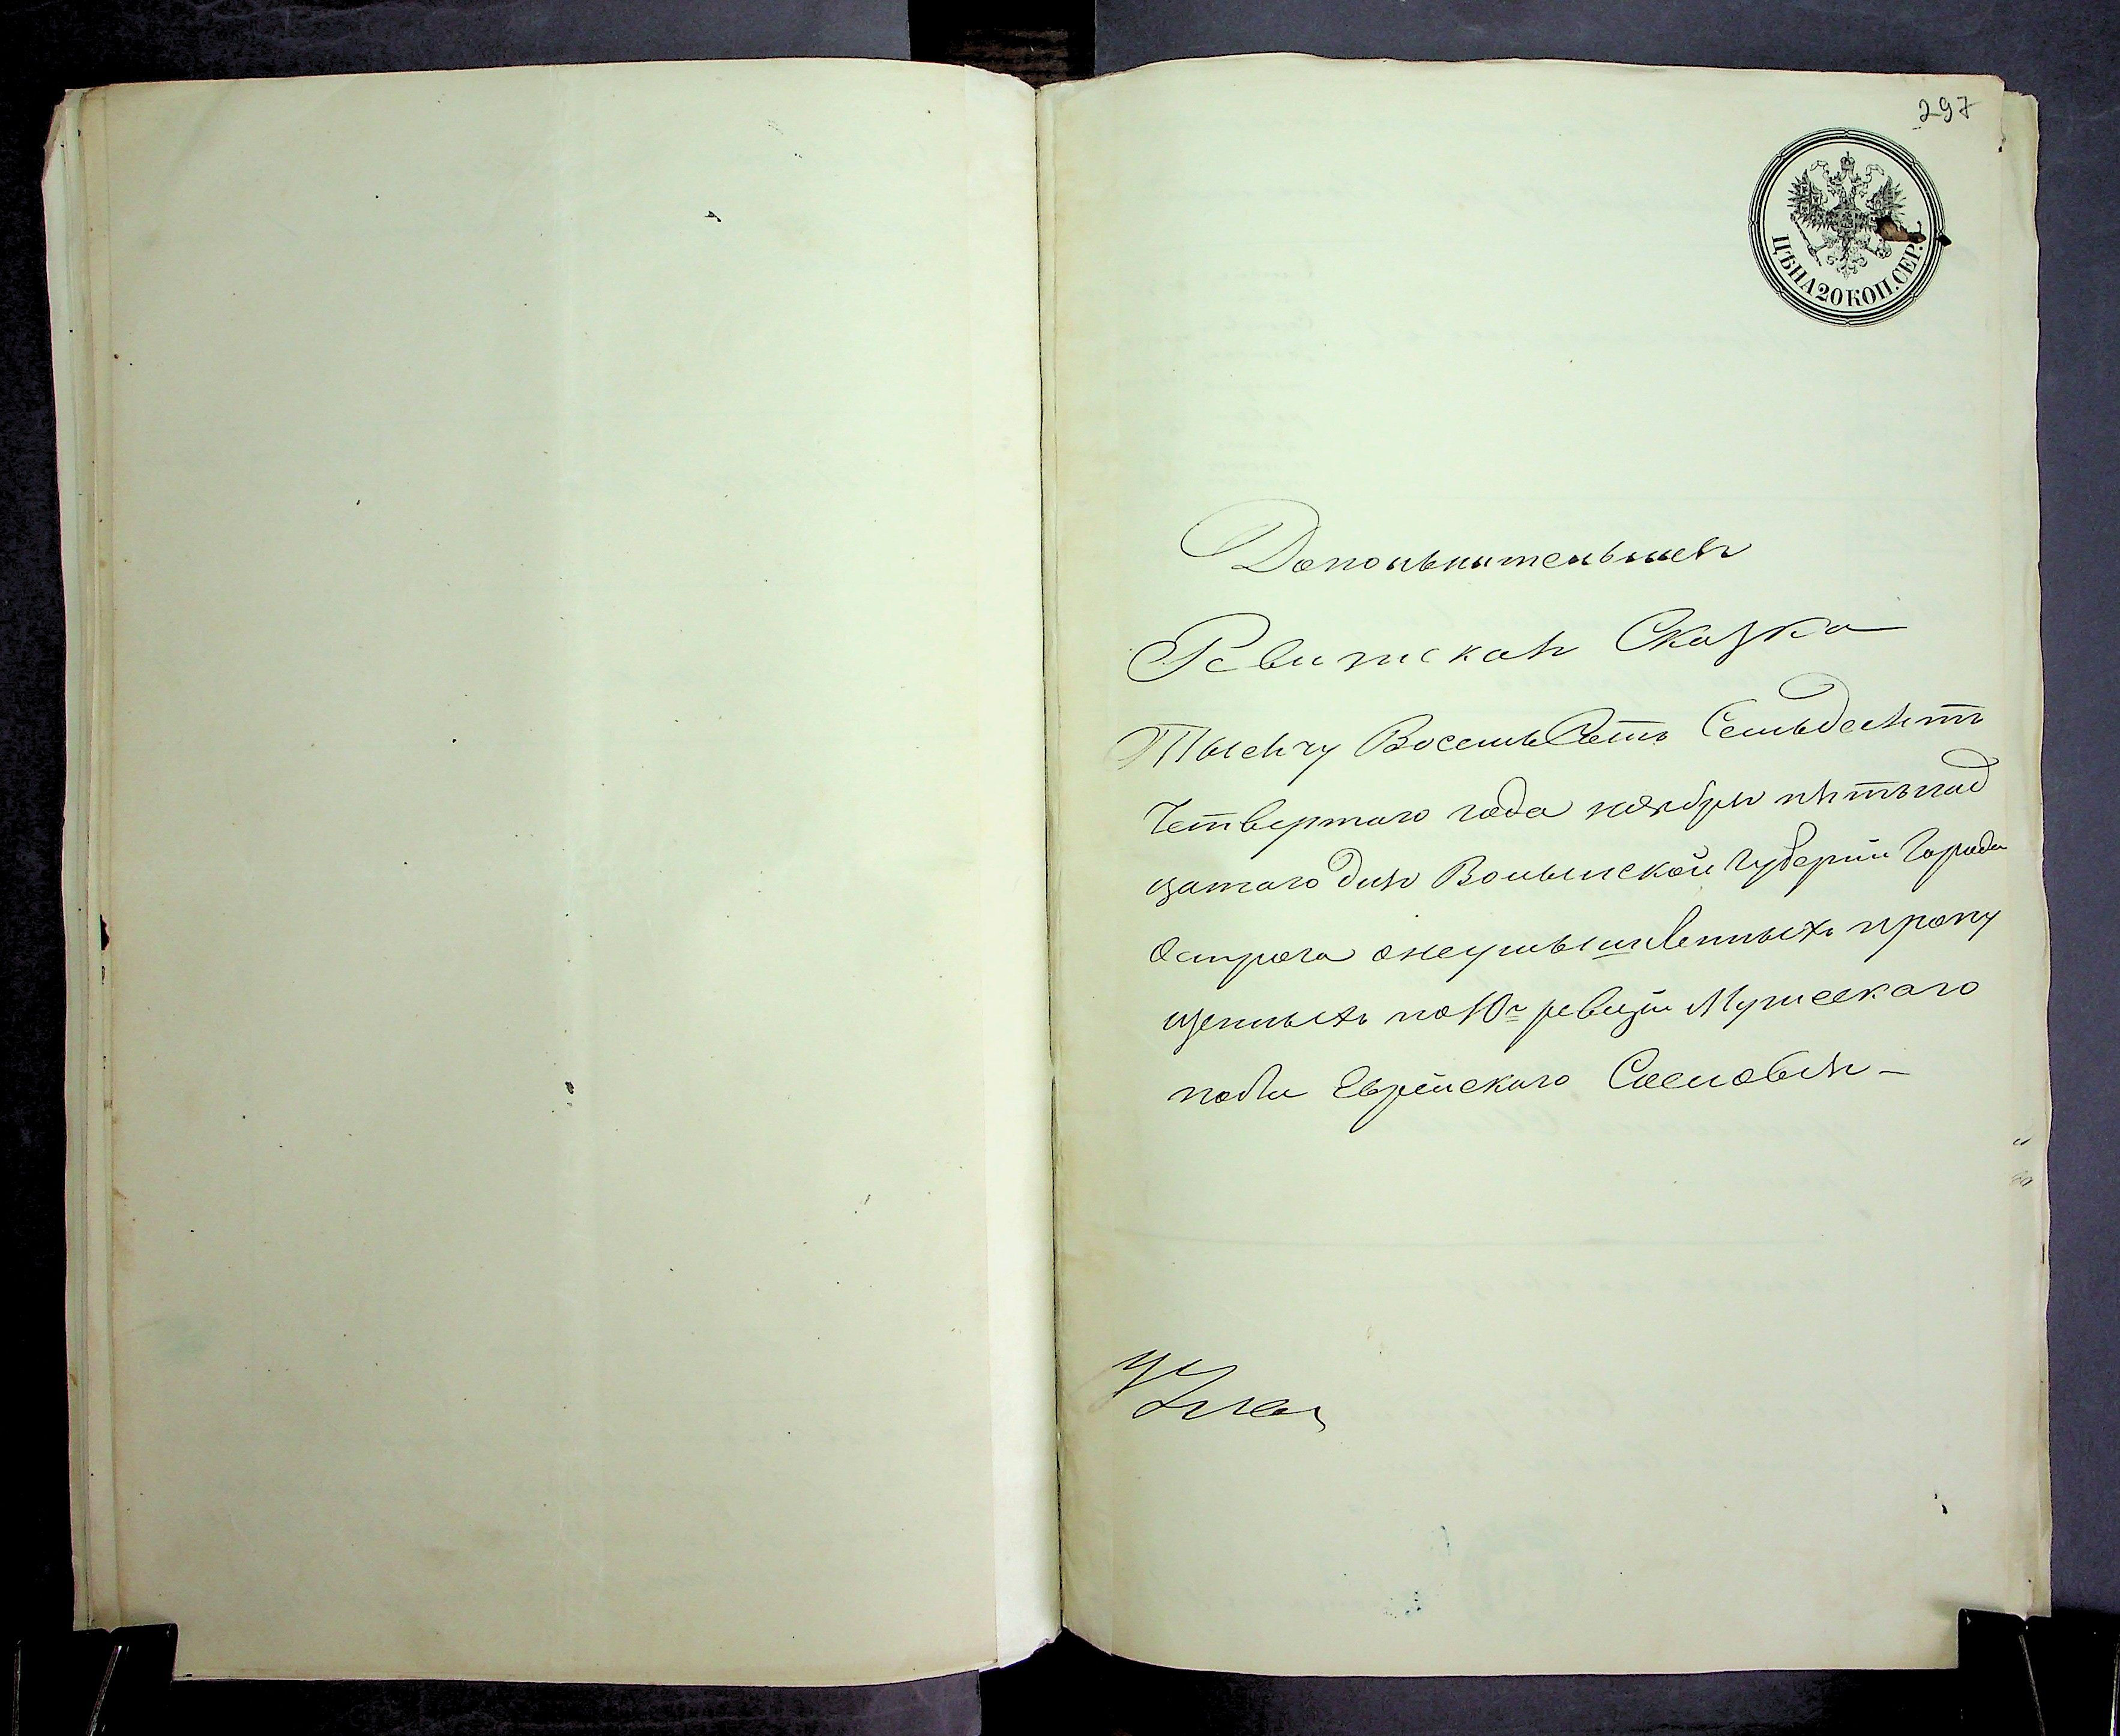 297
ЦѢНА 20 КОП. СЕР.
Дополнительная
Ревизская Сказка
Тысячу Восемьсотъ Семьдесятъ
Четвертаго года ноября пятьнад
цатаго дня Волынской Губерніи Города
Острога о неумышленныхъ пропу
щенныхъ по 10й ревизіи Мужескаго
пола Еврейскаго Сословія –